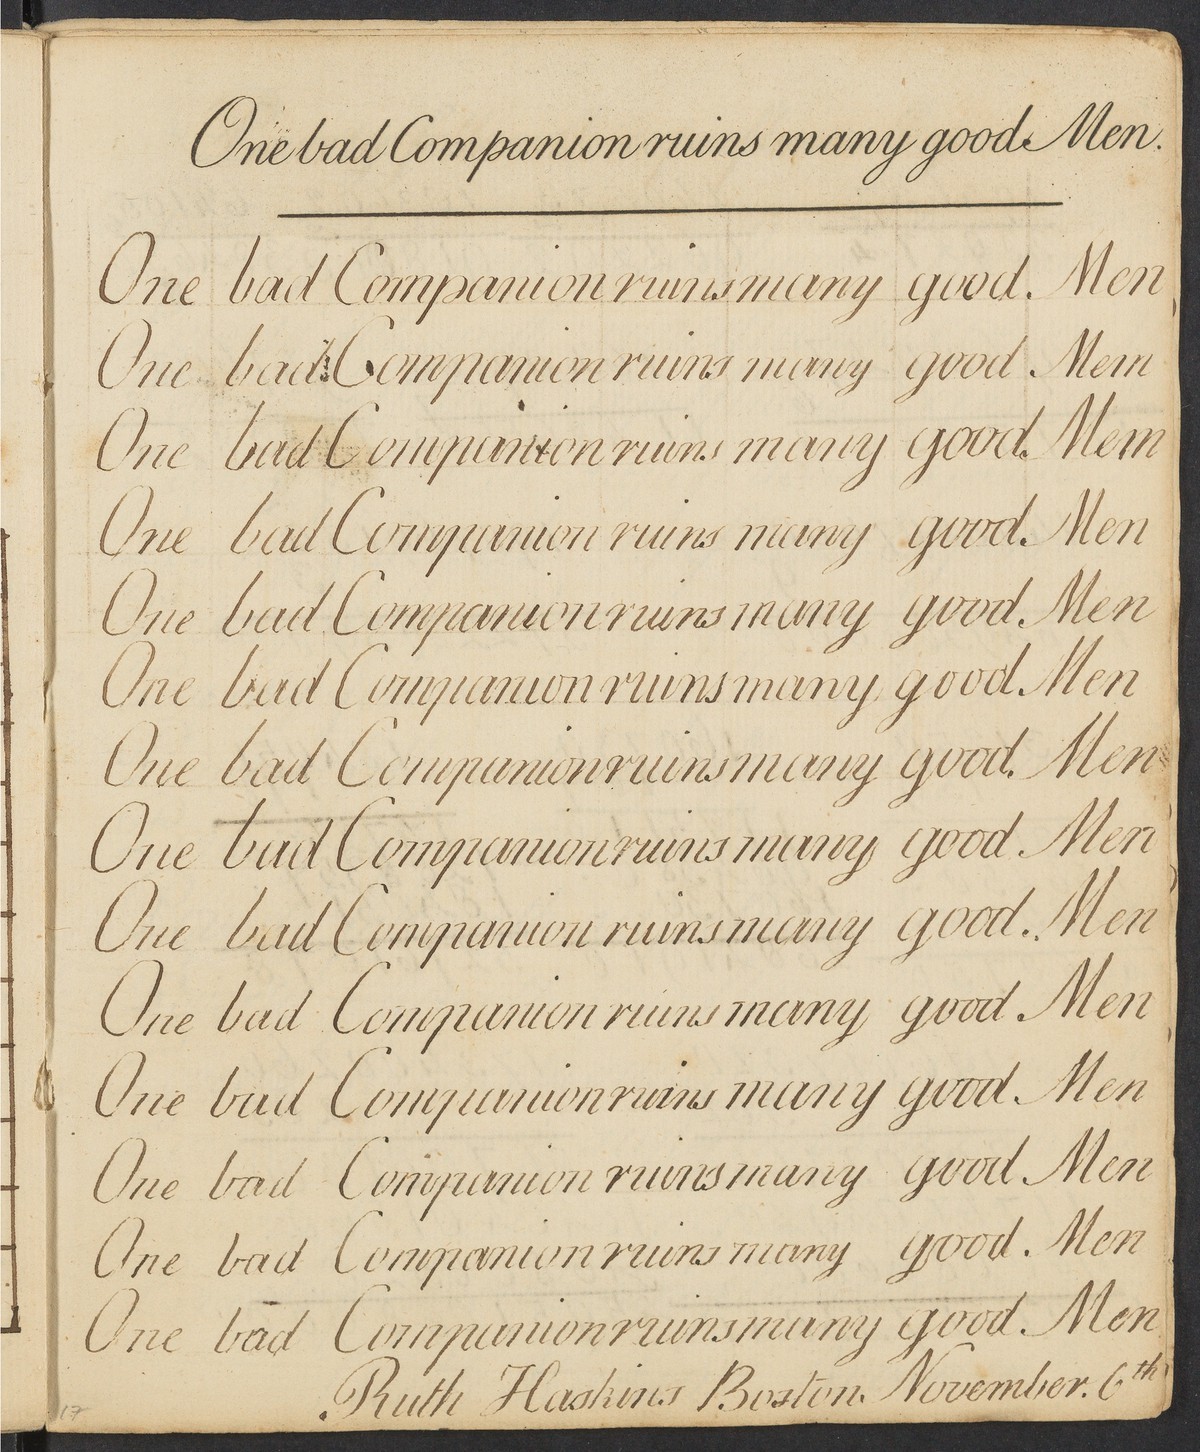 One bad Companion ruins many good Men.
One bad Companion ruins many good Men
One bad Companion ruins many good Mem
One bad Companion ruins many good Mem
One bad Companion ruins many good Men
One bad Companion ruins many good Men
One bad Companion ruins many good Men
One bad Companion ruins many good Men
One bad Companion ruins many good Men
One bad Companion ruins many good Men
One bad Companion ruins many good Men
One bad Companion ruins many good Men
One bad Companion ruins many good Men
One bad Companion ruins many good Men
One bad Companion ruins many good Men
Ruth Haskins Boston. November. 6th
17